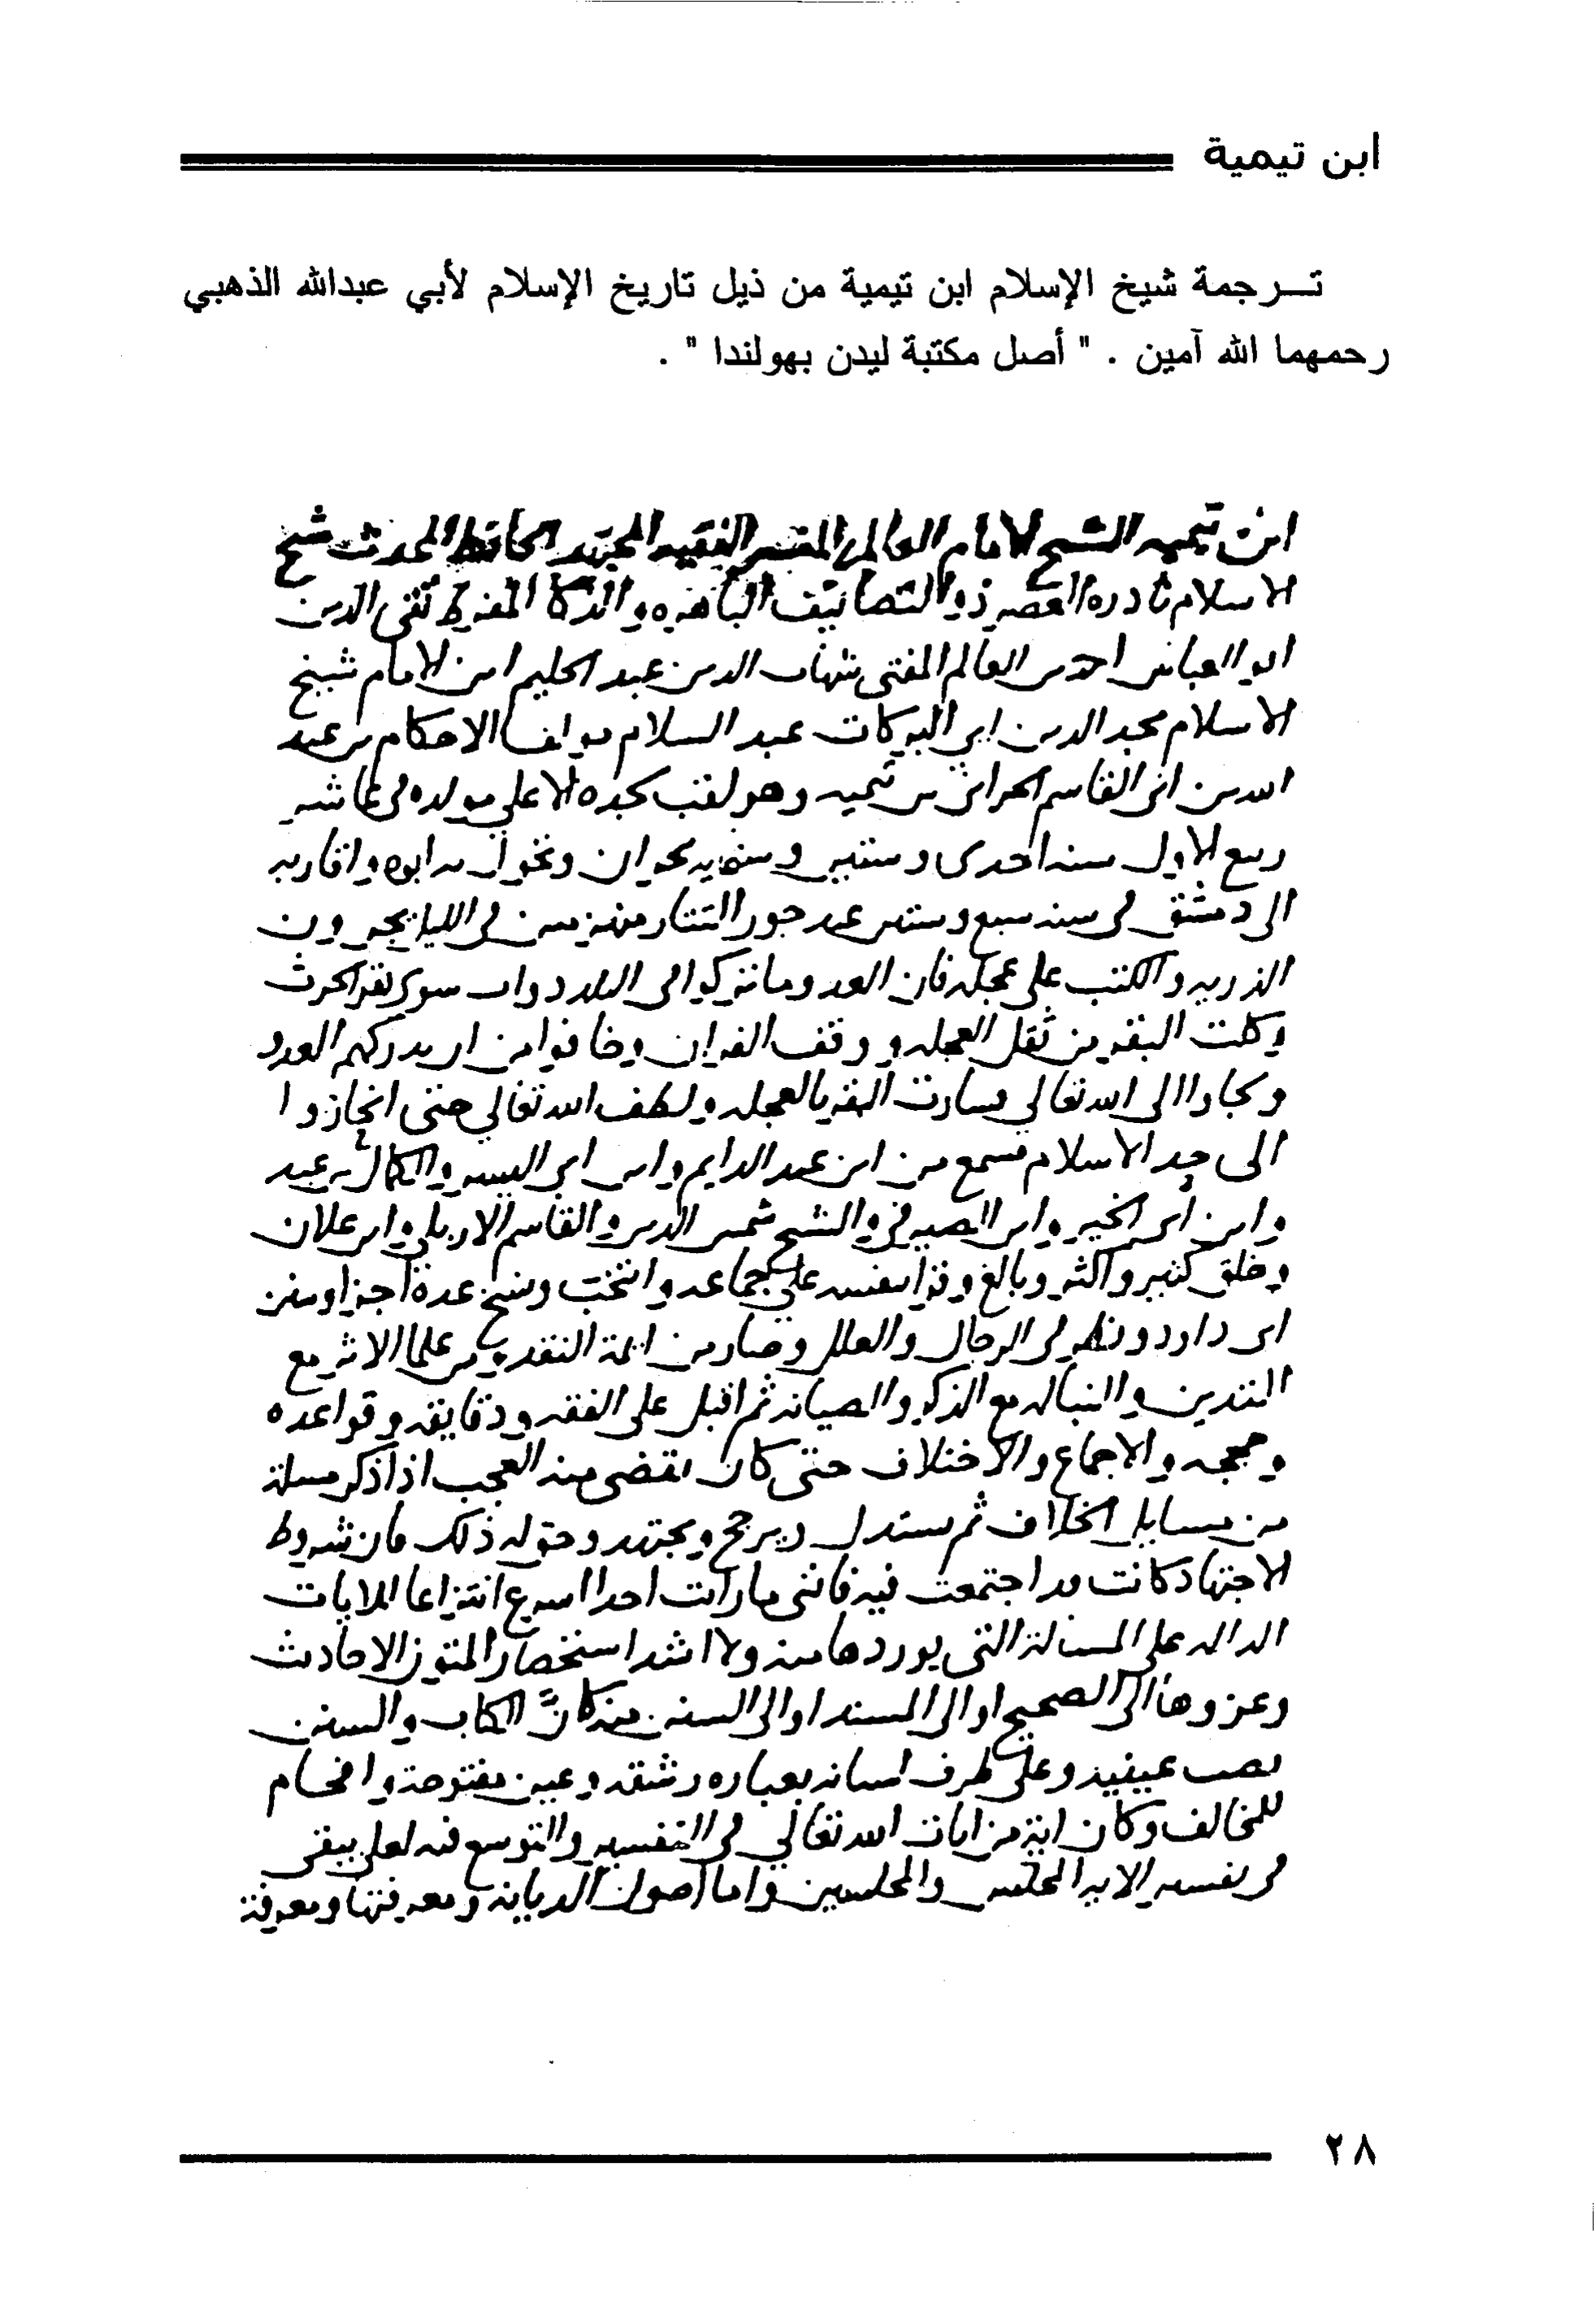 ابن تيمية
تـــرجمة شيخ الإسلام ابن تيمية من ذيل تاريخ الإسلام لأبي عبدالله الذهبي
رحمهما الله آمين . " أصل مكتبة ليدن بهولندا " .
ابن تيميه الشيخ الامام العالم المفسر الفقيه المجتهد الحافظ المحدث شيخ
الاسلام نادره العصر ذو التصانيف الباهره والذكا المفرط تقي الدين
ابو العباس احمد بن العالم المفتي شهاب الدين عبد الحليم ابن الامام شيخ
الاسلام مجد الدين ابي البركات عبد السلام مولف الاحكام بن عبد
الله بن ابي القاسم الحراني بن تيميه وهو لقب لجده الاعلى مولده في عاشر
ربيع الاول سنه احدى وستين وستمايه بحران وتحول به ابوه واقاربه
الى دمشق في سنه سبع وستين عند جور التتار منهزمين في الليل يجرون
الذريه والكتب على عجله فان العدو ما تركوا في البلد دواب سوى بقر الحرث
وكلت البقر من ثقل العجله ووقف الفران وخافوا من ان يدركهم العدو
ولجاوا الى الله تعالى فسارت البقر بالعجله ولطف الله تعالى حتى انحازوا
الى حد الاسلام فسمع من ابن عبد الدايم وابن ابي اليسر والكمال بن عبد
وابن ابي الخير وابن الصيرفي والشيخ شمس الدين والقاسم الاربلي وابن علان
وخلق كثير واكثر وبالغ وقرا بنفسه على جماعه وانتخب ونسخ عدة اجزا وسنن
ابي داود ونظر في الرجال والعلل وصار من ايمة النقد ومن علما الاثر مع
التدين والنباله مع الذكر والصيانه ثم اقبل على الفقه ودقايقه وقواعده
وحججه والاجماع والاختلاف حتى كان يقضى منه العجب اذا ذكر مسلة
من مسايل الخلاف ثم يستدل ويرجح ويجتهد وحق له ذلك فان شروط
الاجتهاد كانت قد اجتمعت فيه فانني ما رايت احدا اسرع انتزاعا للايات
الداله على المسالة التي يوردها منه ولا اشد استحضارا لمتون الاحاديث
وعزوها الى الصحيح او الى المسند او الى السنن منه كان الكتاب والسنن
نصب عينيه وعلى طرف لسانه بعباره رشقه وعين مفتوحة وافحام
للمخالف وكان اية من ايات الله تعالى في التفسير والتوسع فيه لعله يبقى
في تفسير الايه المجلس والمجلسين واما اصول الديانه ومعرفتها ومعرفة
٢٨